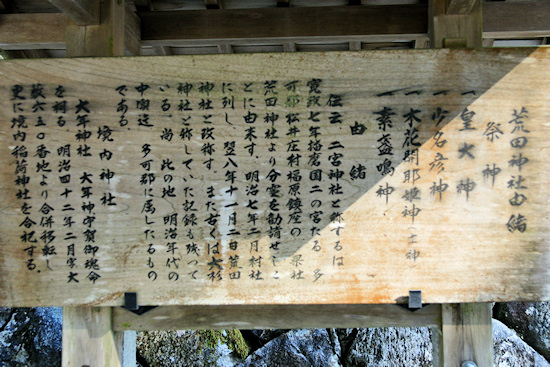 荒田神社由緒
祭神
一皇大神
一少名彦神
一木花開耶姫神(土神)
一素盞鳴神
由緒
伝云 二宮神社と称するは
寛政七年播磨国二の宮たる 多
可郡松井庄村福原鎮座の 県社
荒田神社より分霊を勧請せしこ
とに由来す。明治七年二月村社
に列し、翌八年十一月二日荒田
神社と改称す。また古くは大杉
神社と称していた記録も残って
いる。尚 此の地 明治年代の
中頃迄 多可郡に属したるもの
である。
境内神社
大年神社 大年神守賀御魂命
を祠る 明治四十二年二月字大
坂六五〇番地より合併移転し
更に境内稲荷神社を合祀する。